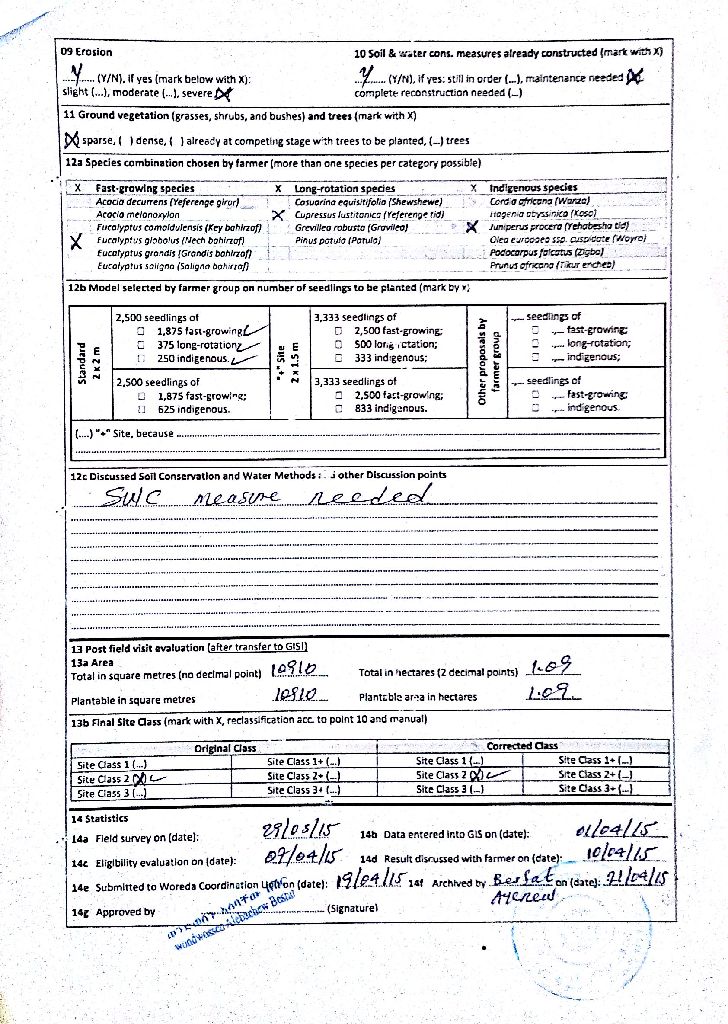 09 Erosion
10 Soil & water cons. measures already constructed (mark with X)
Y (Y/N), if yes (mark below with X):
Y (Y/N), if yes: still in order (...), maintenance needed (X)
slight (...), moderate (...), severe (X)
complete reconstruction needed (...)
11 Ground vegetation (grasses, shrubs, and bushes) and trees (mark with X)
(X) sparse, ( ) dense, ( ) already at competing stage with trees to be planted, (...) trees
12a Species combination chosen by farmer (more than one species per category possible)
X Fast-growing species X Long-rotation species X Indigenous species
Acacia decurrens (Yeferenge girar) Casuarina equisitifolia (Shewshewe) Cordia africana (Wanza)
Acacia melanoxylon X Cupressus lustitanica (Yeferenge tid) Hagenia abyssinica (Koso)
Eucalyptus camaldulensis (Key bahirzaf) Grevillea robusta (Gravilea) X Juniperus procera (Yehabesha tid)
X Eucalyptus globolus (Nech bahirzaf) Pinus patula (Patula) Olea europaea ssp. cuspidate (Wayra)
Eucalyptus grandis (Grandis bahirzaf) Podocarpus falcatus (Zigba)
Eucalyptus saligna (Saligna bahirzaf) Prunus africana (Tikur enched)
12b Model selected by farmer group on number of seedlings to be planted (mark by x)
Standard 2 x 2 m
2,500 seedlings of
1,875 fast-growing; ✓
375 long-rotation; ✓
250 indigenous; ✓
2,500 seedlings of
1,875 fast-growing;
625 indigenous.
"+" Site 2 x 1.5 m
3,333 seedlings of
2,500 fast-growing;
500 long rotation;
333 indigenous;
3,333 seedlings of
2,500 fast-growing;
833 indigenous.
Other proposals by farmer group
... seedlings of
... fast-growing;
... long-rotation;
... indigenous;
... seedlings of
... fast-growing;
... indigenous.
(....) "+" Site, because
12c Discussed Soil Conservation and Water Methods other Discussion points
SWC measure needed
13 Post field visit evaluation (after transfer to GIS!)
13a Area
Total in square metres (no decimal point) 10910 Total in hectares (2 decimal points) 1.09
Plantable in square metres 10910 Plantable area in hectares 1.09
13b Final Site Class (mark with X, reclassification acc. to point 10 and manual)
Original Class Corrected Class
Site Class 1 (...) Site Class 1+ (...) Site Class 1 (...) Site Class 1+ (...)
Site Class 2 (X) ✓ Site Class 2+ (...) Site Class 2 (X) ✓ Site Class 2+ (...)
Site Class 3 (...) Site Class 3+ (...) Site Class 3 (...) Site Class 3+ (...)
14 Statistics
14a Field survey on (date): 29/03/15 14b Data entered into GIS on (date): 01/04/15
14c Eligibility evaluation on (date): 07/04/15 14d Result discussed with farmer on (date): 10/04/15
14e Submitted to Woreda Coordination Unit on (date): 19/04/15 14f Archived by Besfat Aychew on (date): 21/04/15
14g Approved by (Signature)